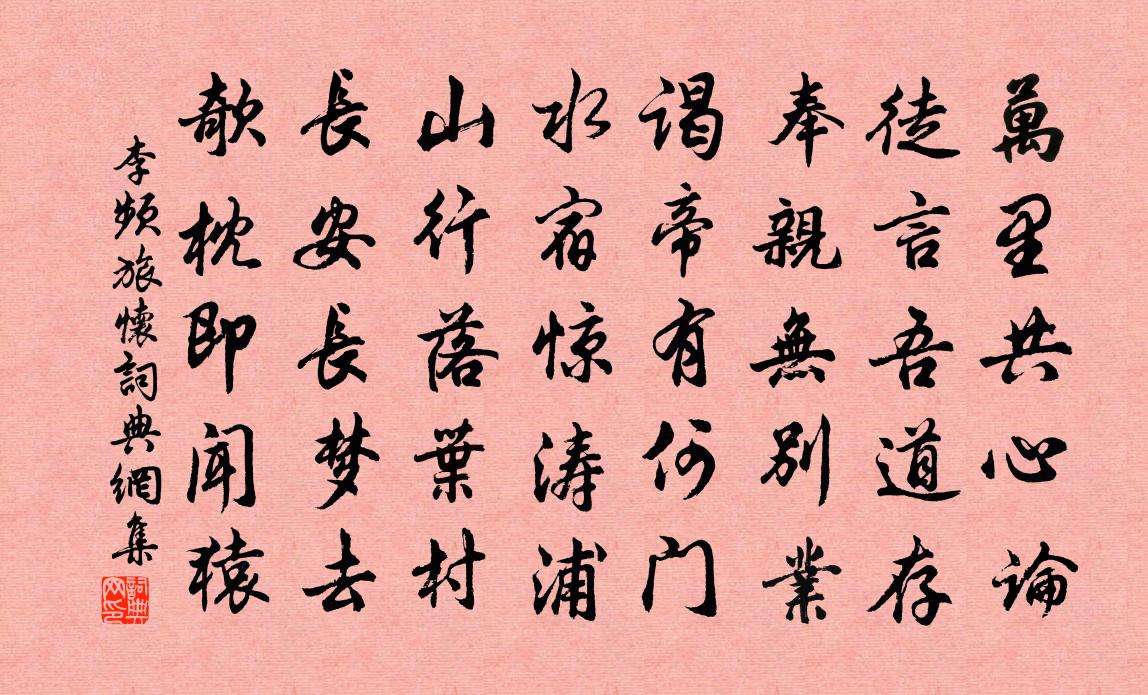 萬里共心論
徒言吾道存
奉親無別業
谒帝有何门
水宿惊涛浦
山行落葉村
長安長梦去
欹枕即闻猿
李頻旅懷詞典網集
詞典网印